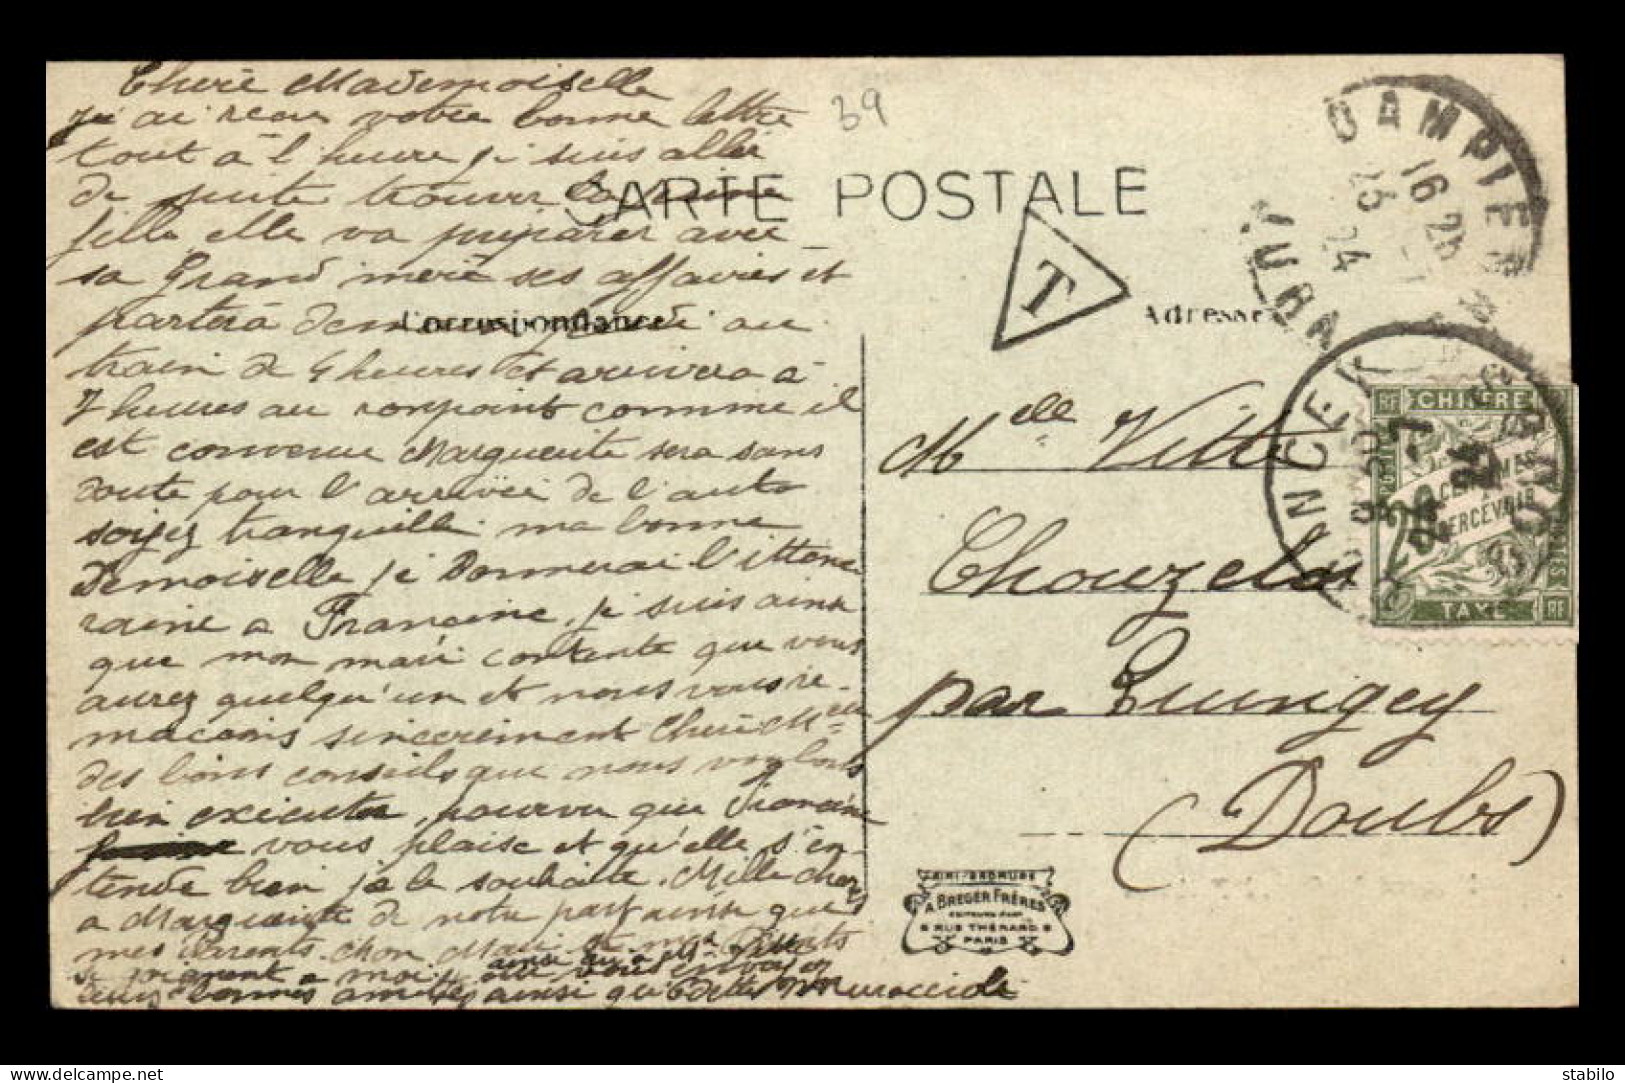 Cherè Mademoiselle
j'ai recu votre bonne lettre
tout à l'heure je suis allér
de suite trouver la
fille, elle va préparer avec
sa Grand mère ses affaires et
partera au
train de 4 heures et arrivera à
7 heures au ronpoint comme il
est convenu Marguerite sera sans
doute pour l'arrivée de l'auto
soyez tranquille ma bonne
Demoiselle je Donnerai l'ittene
raire a Francine, je suis ainsi
que mon mari contente que vous
aurez quelqu'un et nous vous re-
macions sincerement Cherè Melle
des bons conseils que nous
bien executer, pourvu que Francine
vous plaise et qu'elle s'en-
tende bien je le souhaite. Mille
a Marguerite de notre part ainsi que
mes Parents. Mon Mari et mes Parents
se joignent a moi
leurs bonnes amitiés ainsi qu'
39
CARTE POSTALE
Correspondance
T
Adresse
DAMPIERRE
16 25
25
24
JURA
ANCEY
DOUBS
RF CHIFFRE
CENTIMES
A PERCEVOIR
TAXE RF
POSTES
Melle Vitte
Chouzelot
par Quingey
(Doubs)
A. BREGER FRÈRES
9 RUE THÉNARD 9
PARIS
stabilo
www.delcampe.net